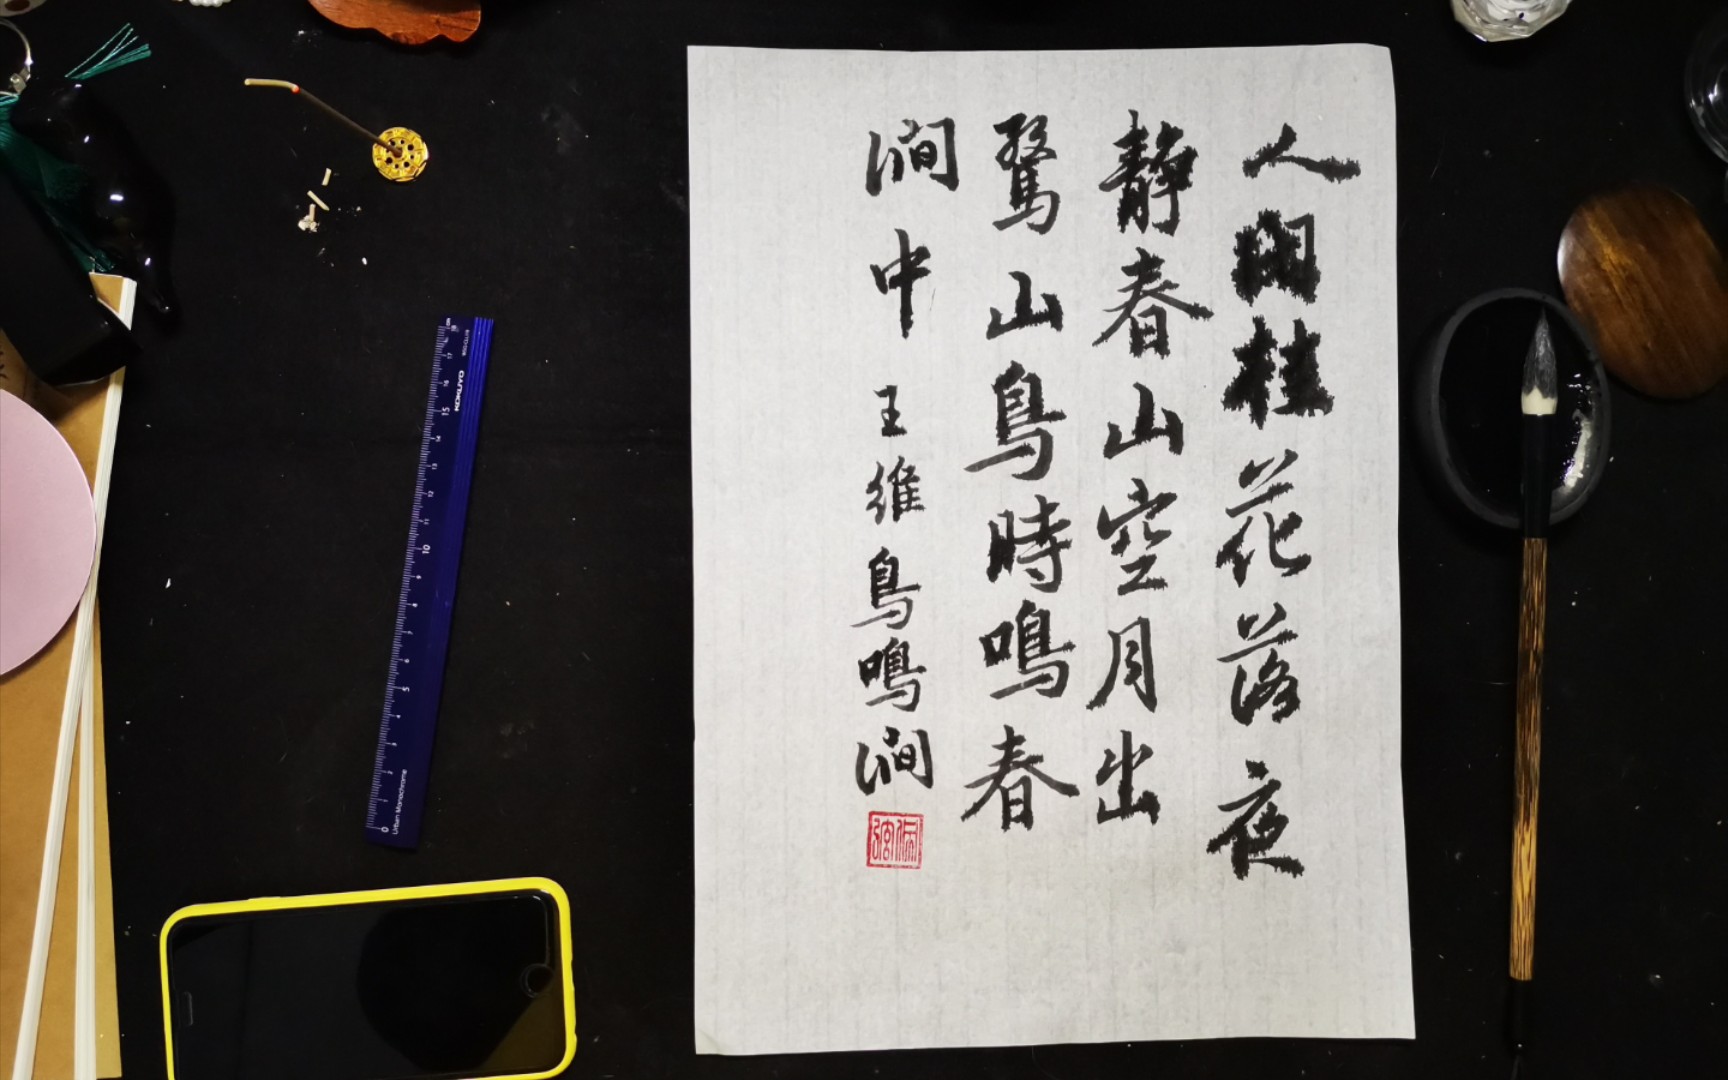 人閑桂花落夜
静春山空月出
驚山鳥時鳴春
澗中 王維鳥鳴澗
KOKUYO
Urban Monochrome